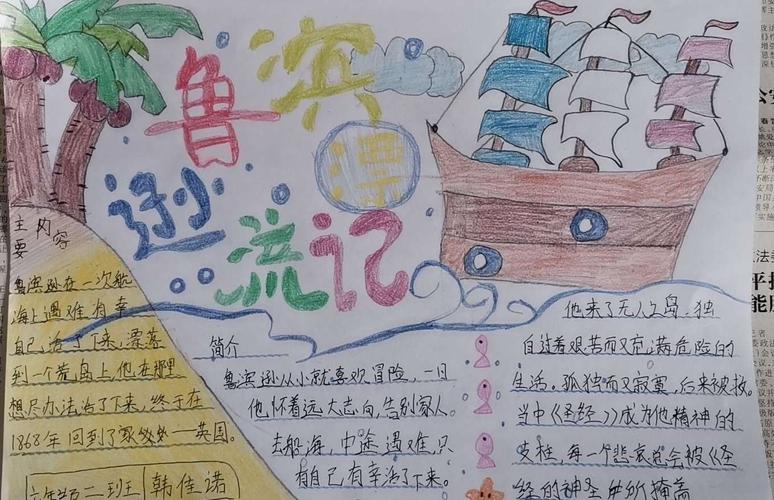 鲁滨
逊漂
流记
主要内容
鲁滨逊在一次航
海上遇难有幸
自己活了下来,漂落
到一个荒岛上他在哪里
想尽办法活了下来,终于在
1868年回到了家
英国。
六年级二班 韩佳诺
简介
鲁滨逊从小就喜欢冒险,一日
他怀着远大志向,告别家人。
去船海,中途遇难,只
有自己有幸活了下来。
他来了无人之岛。独
自过着艰苦而又充满危险的
生活。孤独而又寂寞,后来被救。
当中《圣经》成为他精神的
支柱,每一个悲哀总会被《圣
经的神圣
掩盖